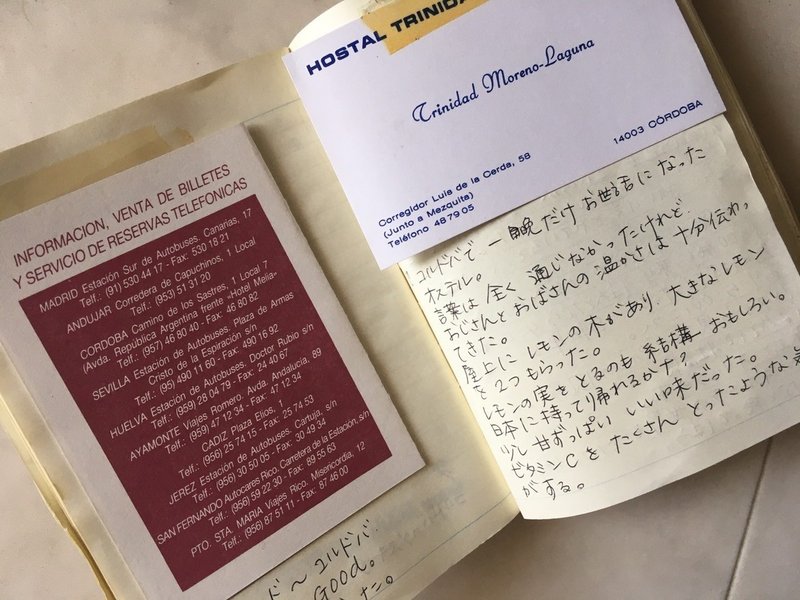 INFORMACION, VENTA DE BILLETES
Y SERVICIO DE RESERVAS TELEFONICAS
MADRID Estación Sur de Autobuses. Canarias, 17
Telf.: (91) 530 44 17 - Fax: 530 18 21
ANDUJAR Corredera de Capuchinos, 1 Local
Telf.: (953) 51 31 20
CORDOBA Camino de los Sastres, 1 Local 7
(Avda. República Argentina frente «Hotel Melia»
Telf.: (957) 46 80 40 - Fax: 46 80 82
SEVILLA Estación de Autobuses. Plaza de Armas
Cristo de la Espiración s/n
Telf.: (95) 490 11 60 - Fax: 490 16 92
HUELVA Estación de Autobuses. Doctor Rubio s/n
Telf.: (959) 28 04 79 - Fax: 24 40 67
AYAMONTE Viajes Romero. Avda. Andalucía, 89
Telf.: (959) 47 12 34 - Fax: 47 12 34
CADIZ Plaza Elios, 1
Telf.: (956) 25 74 15 - Fax: 25 74 53
JEREZ Estación de Autobuses. Cartuja, s/n
Telf.: (956) 30 50 05 - Fax: 30 49 34
SAN FERNANDO Autocares Rico. Carretera de la Estacion, s/n
Telf.: (956) 59 22 30 - Fax: 89 55 63
PTO. STA. MARIA Viajes Rico. Misericordia, 12
Telf.: (956) 87 51 11 - Fax: 87 46 00
ド～コルドバ
GOOD。
た。
HOSTAL TRINIDA
Trinidad Moreno-Laguna
Corregidor Luis de la Cerda, 58
(Junto a Mezquita)
Teléfono 48 79 05
14003 CÓRDOBA
コルドバで一晩だけお世話になった
オステル。
言葉は全く通じなかったけれど
おじさんとおばさんの温かさは十分伝わっ
てきた。
屋上にレモンの木があり、大きなレモン
を2つもらった。
レモンの実をとるのも結構おもしろい。
日本に持って帰れるかな?
少し甘ずっぱいいい味だった。
ビタミンCをたくさんとったような気
がする。